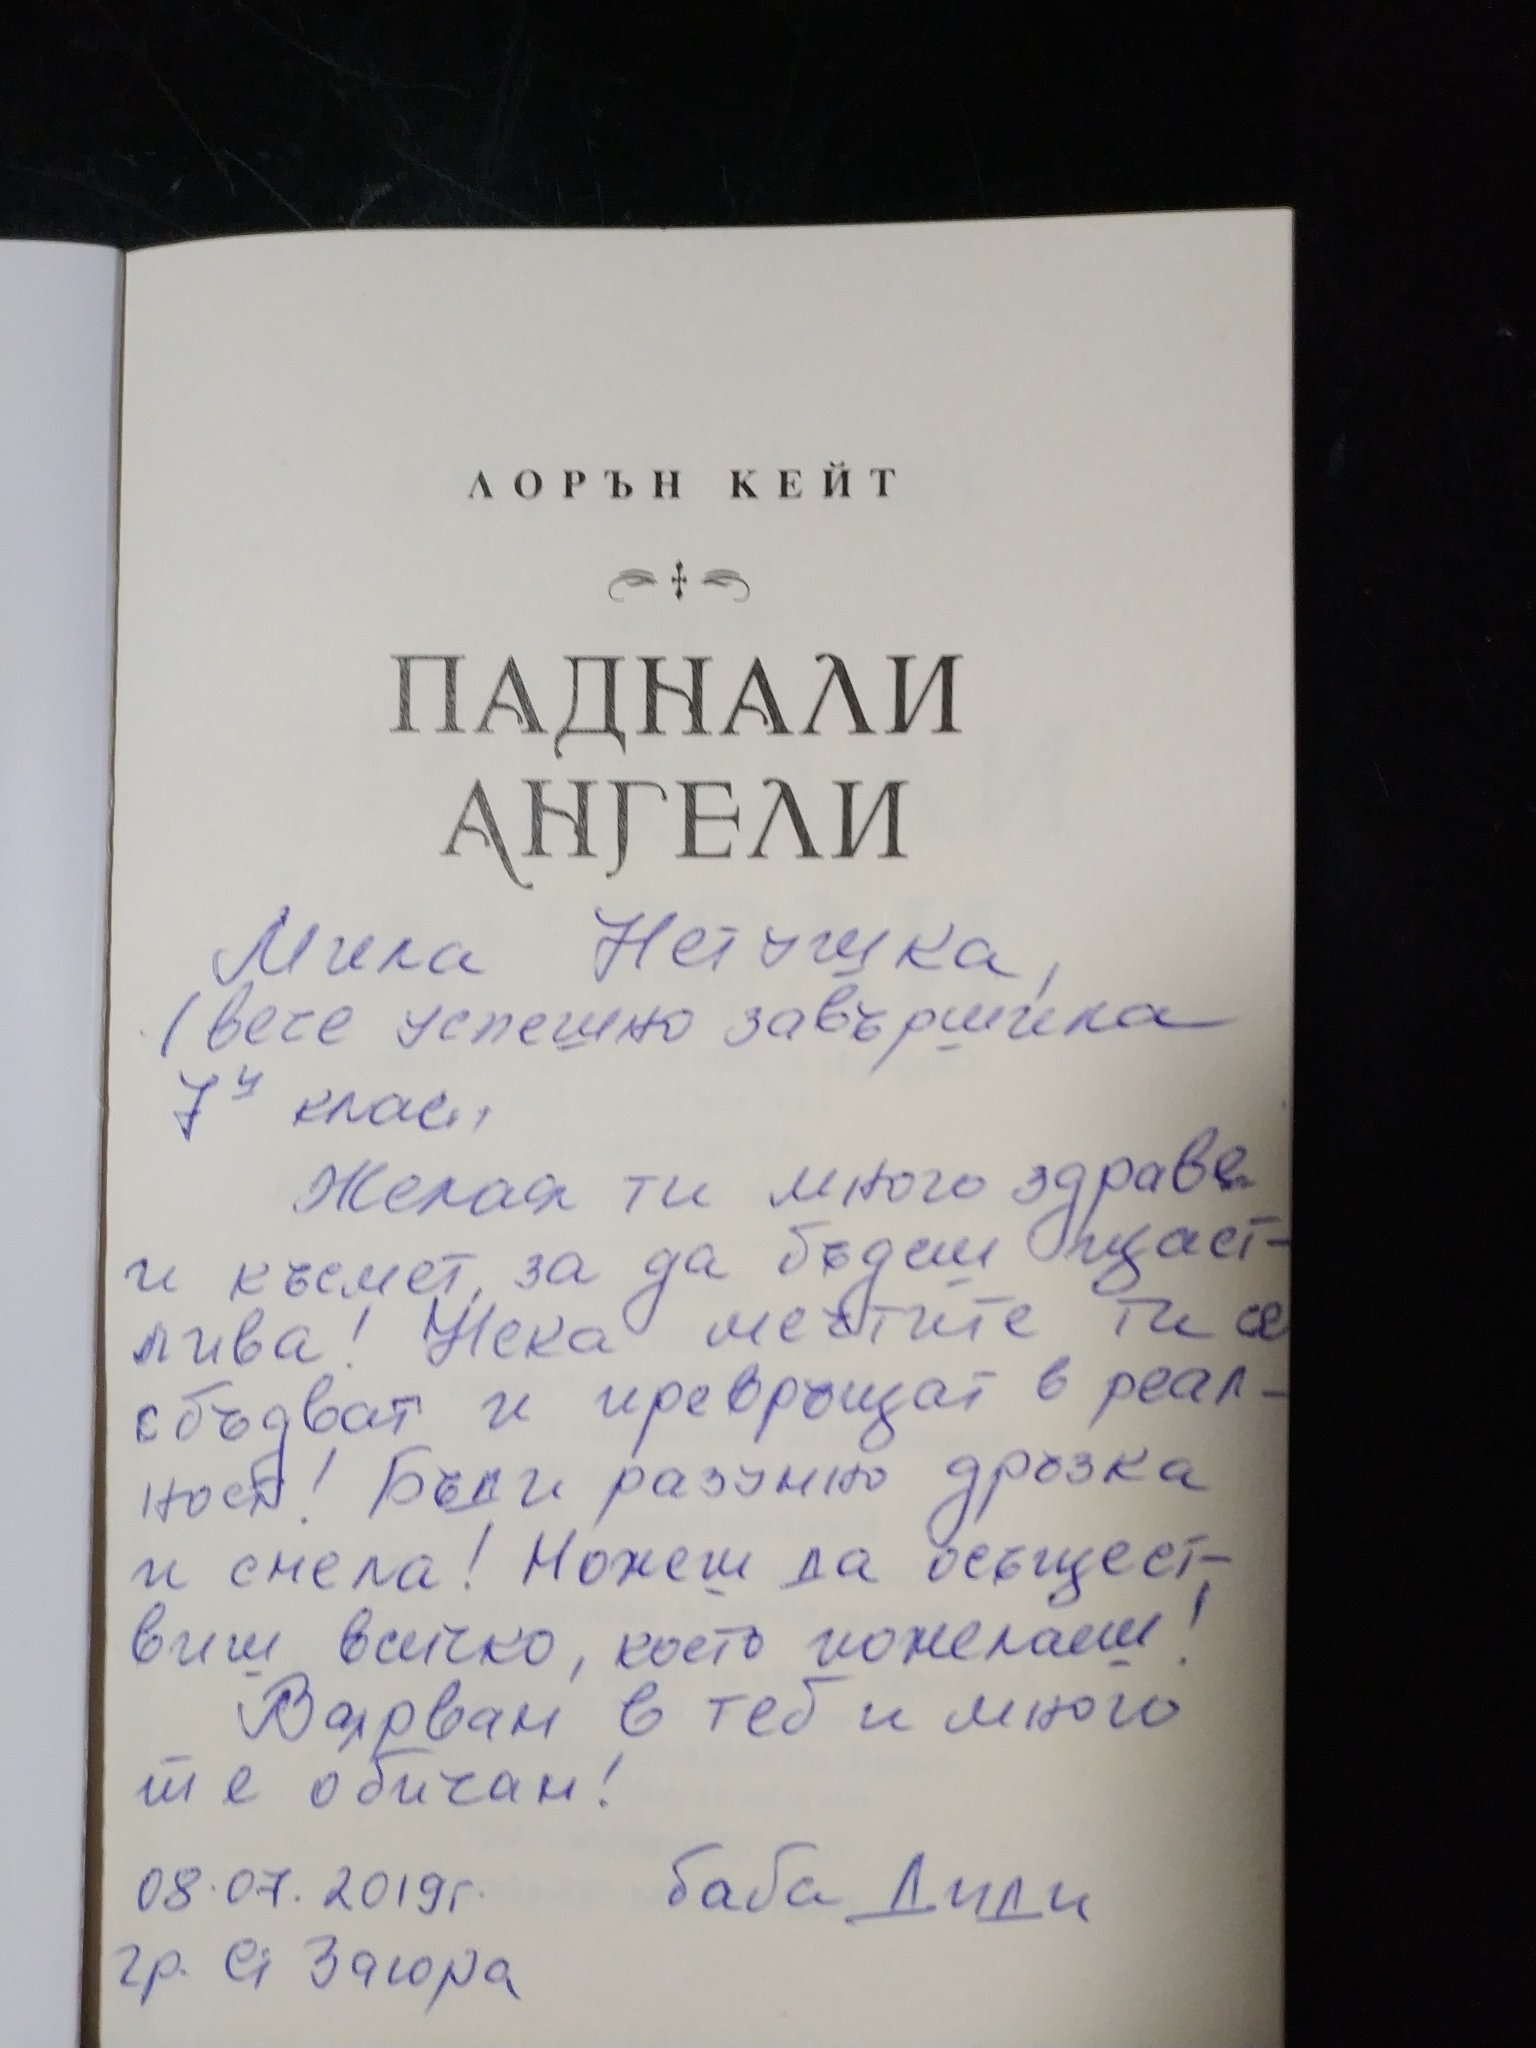 ЛОРЪН КЕЙТ
ПАДНАЛИ
АНГЕЛИ
Мила Нетушка,
(вече успешно завършила
7и клас,
Желая ти много здраве
и късмет, за да бъдеш щаст-
лива! Нека мечтите ти се
сбъдват и превръщат в реал-
ност! Бъди разумно дръзка
и смела! Можеш да осъщест-
виш всичко, което пожелаеш!
Вярвам в теб и много
те обичам!
08.07.2019г. баба Диди
гр. Ст Загора